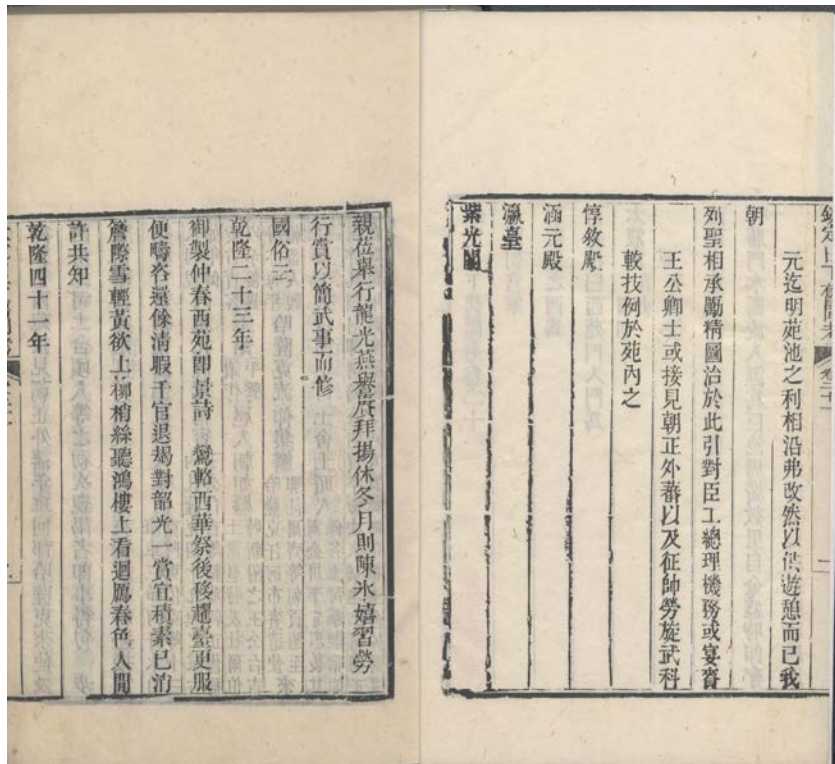 欽定日下舊聞考 卷二十一
元迄明苑池之利相沿弗改然以供遊憩而已我
朝
列聖相承勵精圖治於此引對臣工總理機務或宴賚
王公卿士或接見朝正外藩以及征帥勞旋武科
較技例於苑內之
惇敘殿
涵元殿
瀛臺
紫光閣
親莅舉行龍光燕譽賡拜揚休冬月則陳氷嬉習勞
行賞以簡武事而修
國俗云
乾隆二十三年
御製仲春西苑卽景詩 鸞輅西華祭後移瀛臺更服
便疇咨還餘淸暇千官退揭對韶光一賞宜積素已消
簷際雪輕黃欲上柳梢絲聽鴻樓上看迴鴈春色人間
許共知
乾隆四十一年